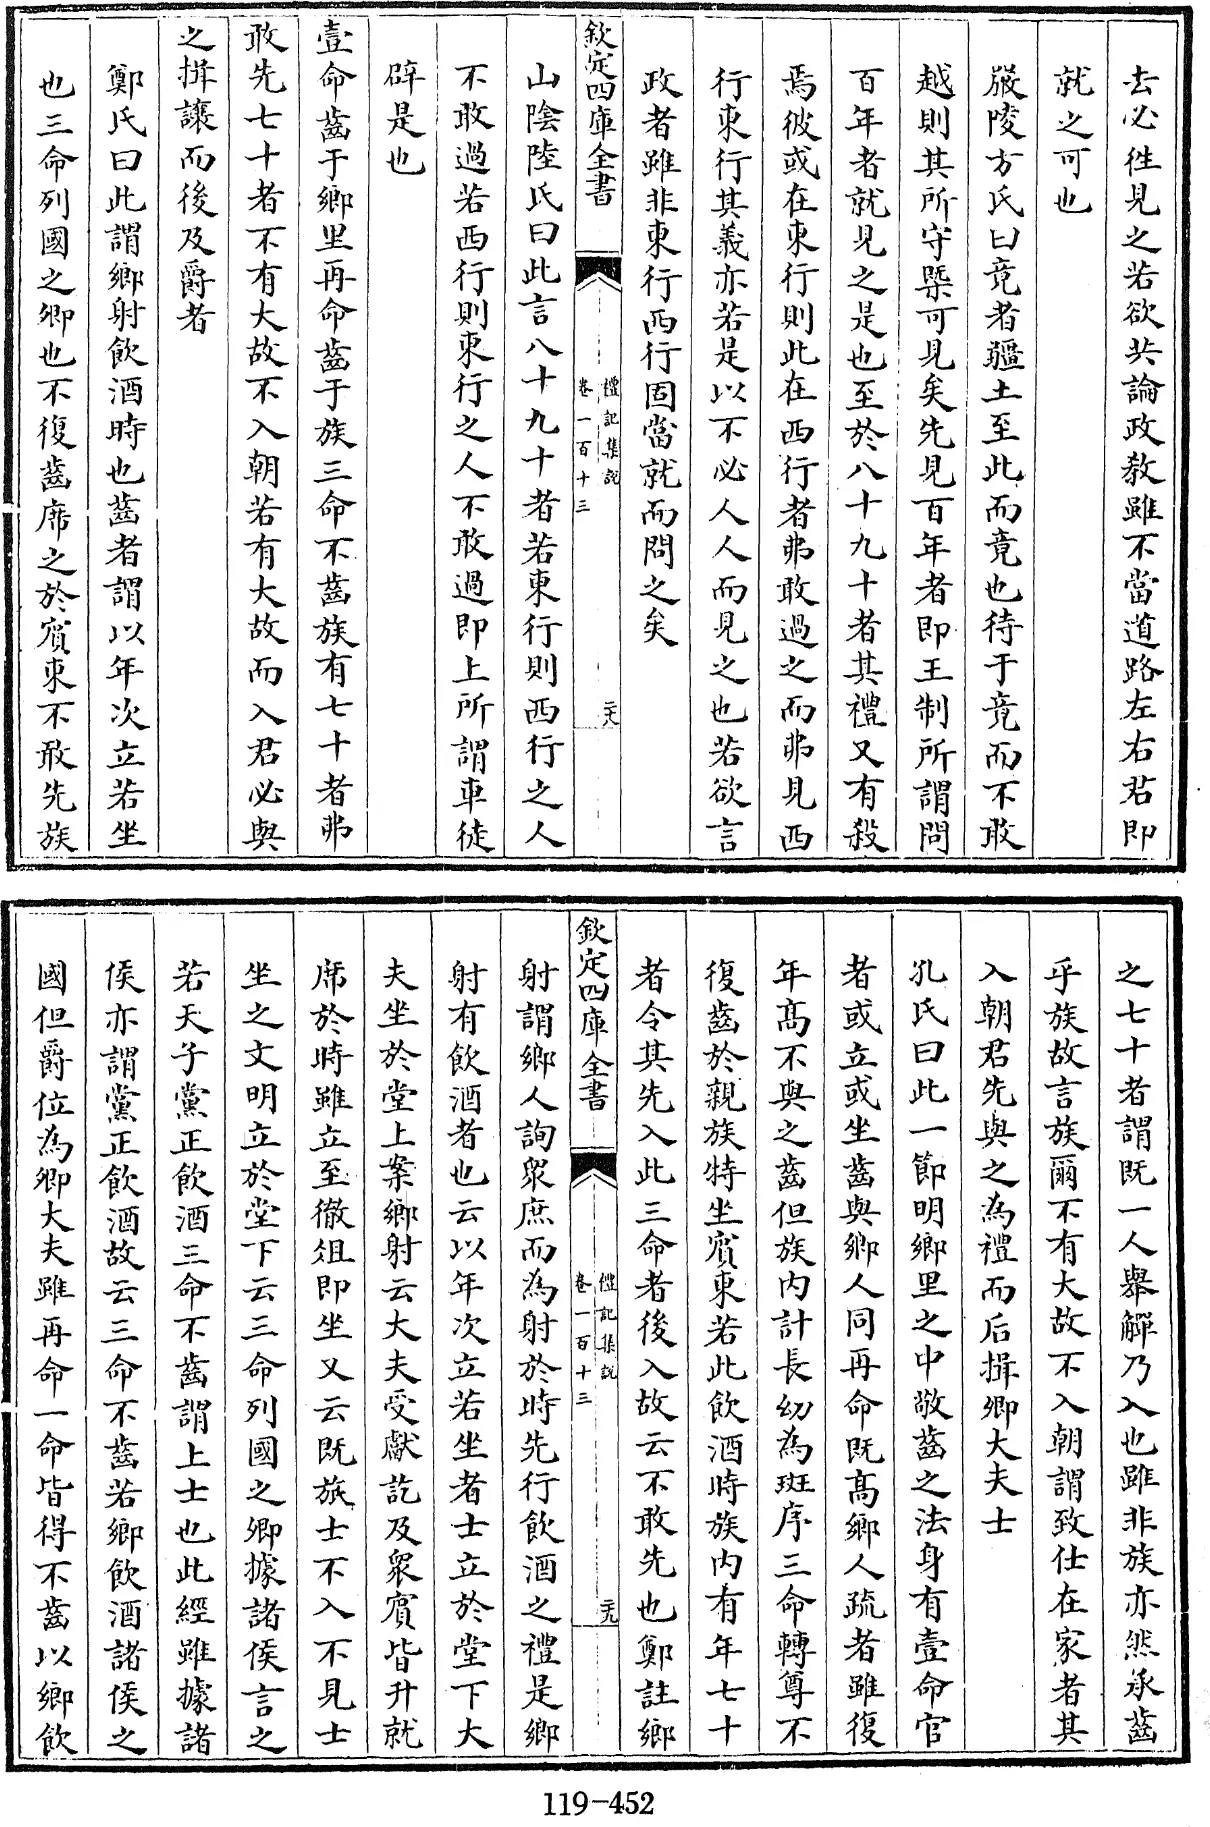 去必徃見之若欲共論政教雖不當道路左右君即
就之可也
嚴陵方氏曰竟者疆土至此而竟也待于竟而不敢
越則其所守槩可見矣先見百年者即王制所謂問
百年者就見之是也至於八十九十者其禮又有殺
焉彼或在東行則此在西行者弗敢過之而弗見西
行東行其義亦若是以不必人人而見之也若欲言
政者雖非東行西行固當就而問之矣
欽定四庫全書
禮記集說
卷一百十三
二十八
山陰陸氏曰此言八十九十者若東行則西行之人
不敢過若西行則東行之人不敢過即上所謂車徒
辟是也
壹命齒于鄉里再命齒于族三命不齒族有七十者弗
敢先七十者不有大故不入朝若有大故而入君必與
之揖讓而後及爵者
鄭氏曰此謂鄉射飲酒時也齒者謂以年次立若坐
也三命列國之卿也不復齒席之於賓東不敢先族
之七十者謂既一人舉觶乃入也雖非族亦然承齒
乎族故言族爾不有大故不入朝謂致仕在家者其
入朝君先與之為禮而后揖卿大夫士
孔氏曰此一節明鄉里之中敬齒之法身有壹命官
者或立或坐齒與鄉人同再命既高鄉人疏者雖復
年高不與之齒但族內計長幼為班序三命轉尊不
復齒於親族特坐賓東若此飲酒時族內有年七十
者令其先入此三命者後入故云不敢先也鄭註鄉
欽定四庫全書
禮記集說
卷一百十三
二十九
射謂鄉人詢衆庶而為射於時先行飲酒之禮是鄉
射有飲酒者也云以年次立若坐者士立於堂下大
夫坐於堂上案鄉射云大夫受獻訖及衆賓皆升就
席於時雖立至徹俎即坐又云既旅士不入不見士
坐之文明立於堂下云三命列國之卿據諸侯言之
若天子黨正飲酒三命不齒謂上士也此經雖據諸
侯亦謂黨正飲酒故云三命不齒若鄉飲酒諸侯之
國但爵位為卿大夫雖再命一命皆得不齒以鄉飲
119-452